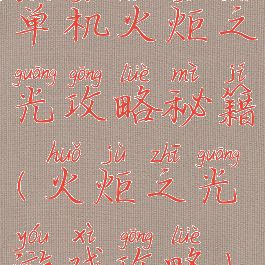 单机火炬之
guāng gōng lüè mì jí
光攻略秘籍
huǒ jù zhī guāng
(火炬之光
yóu xì gōng lüè
游戏攻略)